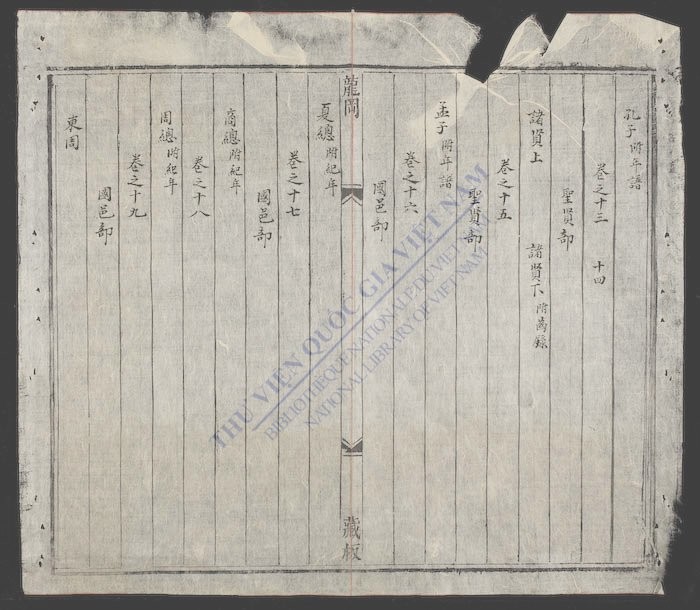 孔子附年譜
卷之十三 十四
聖賢部
諸賢上 諸賢下附啇錄
卷之十五
聖賢部
孟子附年譜
卷之十六
國邑部
龍岡
藏板
夏總附紀年
卷之十七
國邑部
商總附紀年
卷之十八
周總附紀年
卷之十九
國邑部
東周
THƯ VIỆN QUỐC GIA VIỆT NAM
BIBLIOTHÈQUE NATIONALE DU VIỆT NAM
NATIONAL LIBRARY OF VIETNAM